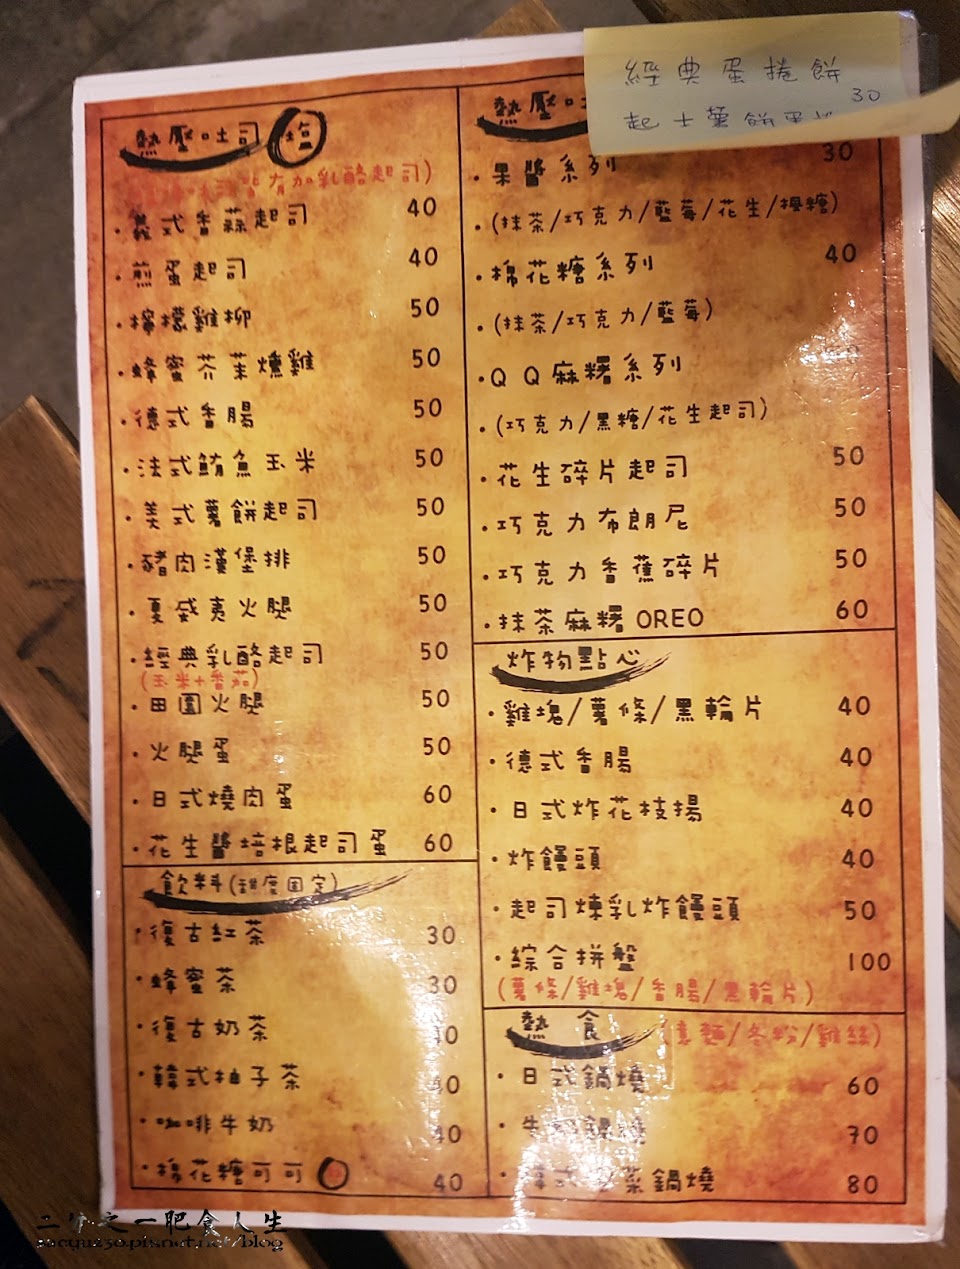 經典蛋捲餅
30
起士薯餅蛋
熱壓吐司 塩
有加乳酪起司)
義式香蒜起司 40
煎蛋起司 40
檸檬雞柳 50
蜂蜜芥茉燻雞 50
德式香腸 50
法式鮪魚玉米 50
美式薯餅起司 50
豬肉漢堡排 50
夏威夷火腿 50
經典乳酪起司 50
(玉米+番茄)
田園火腿 50
火腿蛋 50
日式燒肉蛋 60
花生醬培根起司蛋 60
飲料(甜度固定)
復古紅茶 30
蜂蜜茶 30
復古奶茶 40
韓式柚子茶 40
咖啡牛奶 40
棉花糖可可 40
熱壓吐
果醬系列 30
(抹茶/巧克力/藍莓/花生/楓糖)
棉花糖系列 40
(抹茶/巧克力/藍莓)
QQ麻糬系列
(巧克力/黑糖/花生起司)
花生碎片起司 50
巧克力布朗尼 50
巧克力香蕉碎片 50
抹茶麻糬OREO 60
炸物點心
雞塊/薯條/黑輪片 40
德式香腸 40
日式炸花枝揚 40
炸饅頭 40
起司煉乳炸饅頭 50
綜合拼盤 100
(薯條/雞塊/香腸/黑輪片)
熱食 (意麵/冬粉/雞絲)
日式鍋燒 60
牛奶鍋燒 70
韓式泡菜鍋燒 80
二分之一肥食人生